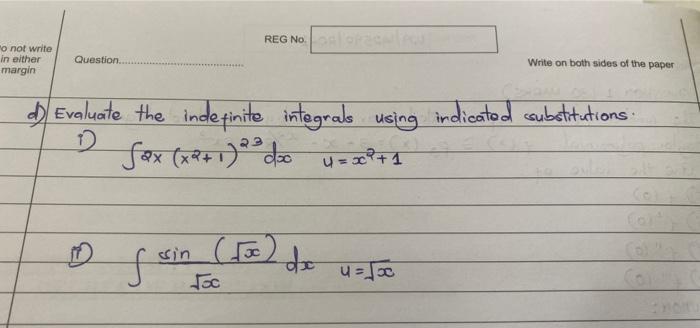 REG No.
Do not write
in either
margin
Question............................
Write on both sides of the paper
d) Evaluate the indefinite integrals using indicated substitutions.
i) ∫2x (x²+1)²³ dx   u = x²+1
ii) ∫ sin (√x) / √x dx   u = √x